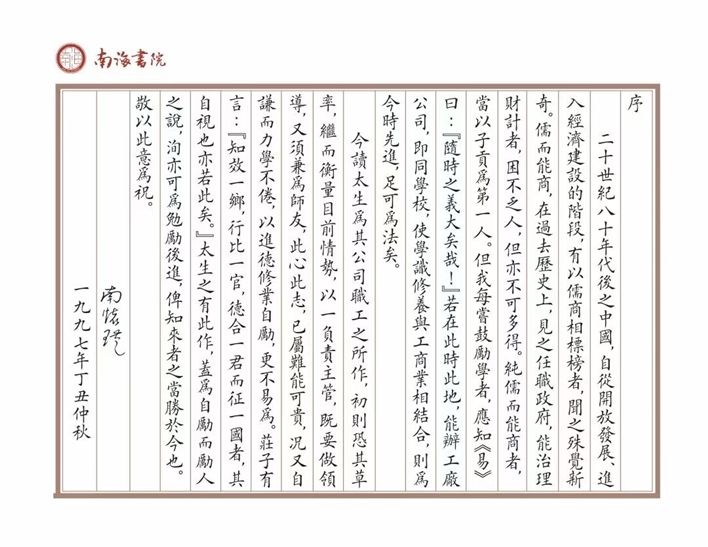 南海書院
序
二十世紀八十年代後之中國，自從開放發展、進
入經濟建設的階段，有以儒商相標榜者，聞之殊覺新
奇。儒而能商，在過去歷史上，見之任職政府，能治理
財計者，固不乏人，但亦不可多得。純儒而能商者，
當以子貢為第一人。但我每嘗鼓勵學者，應知《易》
曰：『隨時之義大矣哉！』若在此時此地，能辦工廠
公司，即同學校，使學識修養與工商業相結合，則為
今時先進，足可為法矣。
今讀太生為其公司職工之所作，初則恐其草
率，繼而衡量目前情勢，以一負責主管，既要做領
導，又須兼為師友，此心此志，已屬難能可貴，況又自
謙而力學不倦，以進德修業自勵，更不易為。莊子有
言：『知效一鄉，行比一官，德合一君而征一國者，其
自視也亦若此矣。』太生之有此作，蓋為自勵而勵人
之說，洵亦可為勉勵後進，俾知來者之當勝於今也。
敬以此意為祝。
南懷瑾
一九九七年丁丑仲秋